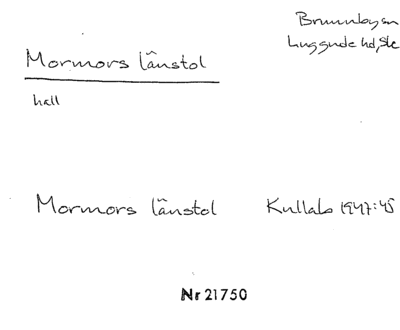 Brunnby sn
Luggude hd, Sk
Mormors länstol
hall
Mormors länstol Kullab 1947:45
Nr 21750